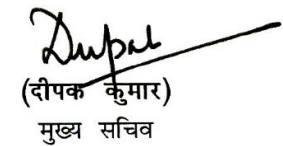 Dupal
(दीपक कुमार)
मुख्य सचिव